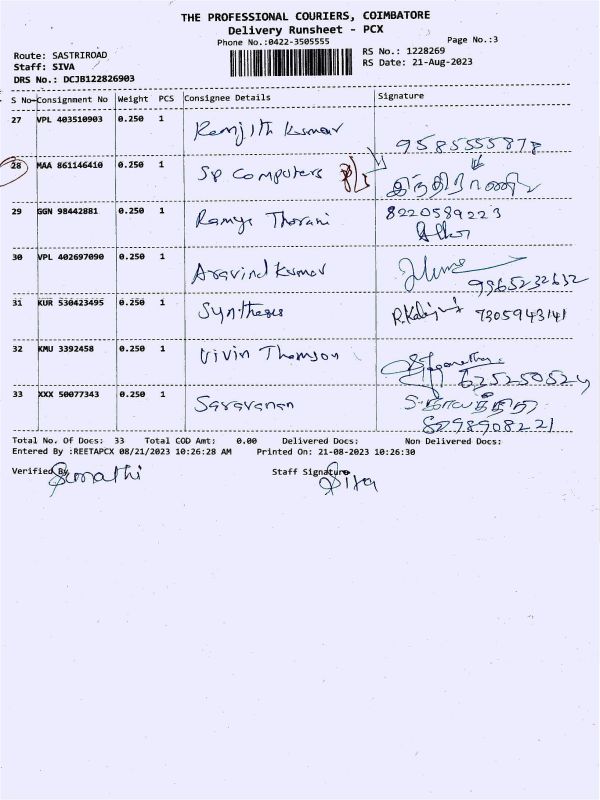 THE PROFESSIONAL COURIERS, COIMBATORE
Delivery Runsheet - PCX
Phone No.:0422-3505555
Page No.:3
Route: SASTRIROAD
Staff: SIVA
DRS No.: DCJB122826903
RS No.: 1228269
RS Date: 21-Aug-2023
S No Consignment No Weight PCS Consignee Details Signature
27 VPL 403510903 0.250 1 Renjith Kumar 9585555878
28 MAA 861146410 0.250 1 Sp Computers இந்திராணி
29 GGN 98442881 0.250 1 Ramya Thorani 8220589223
30 VPL 402697090 0.250 1 Aravind Kumar 9965232632
31 KUR 530423495 0.250 1 Synthesis 7305943141
32 KMU 3392458 0.250 1 Vivin Thomson
33 XXX 50077343 0.250 1 Saravanan
8298908221
Total No. Of Docs: 33 Total COD Amt: 0.00 Delivered Docs: Non Delivered Docs:
Entered By :REETAPCX 08/21/2023 10:26:28 AM Printed On: 21-08-2023 10:26:30
Verified By Sumathi Staff Signature Siva